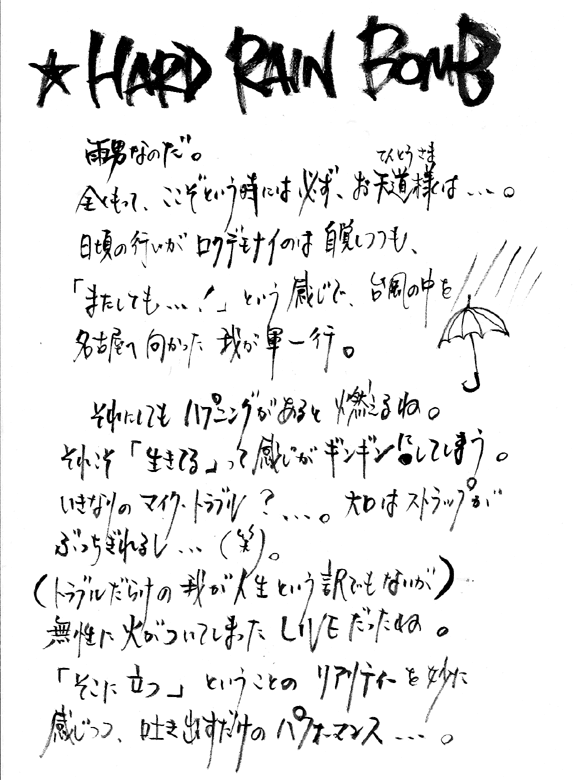 ★HARD RAIN BOMB
雨男なのだ。
てんとうさま
全くもって、ここぞという時には必ず、お天道様は…。
日頃の行いがロクデモナイのは自覚しつつも、
「またしても…!」という感じで、台風の中を
名古屋へ向かった我が軍一行。
それにしてもハプニングがあると燃えるね。
それこそ「生きてる」って感じがギンギンにしてしまう。
いきなりのマイク・トラブル?…。大口はストラップが
ぶっちぎれるし…(笑)。
(トラブルだらけの我が人生という訳でもないが)
無性に火がついてしまったLIVEだったね。
「そこに立つ」ということのリアリティーを妙に
感じつつ、吐き出すだけのパフォーマンス…。